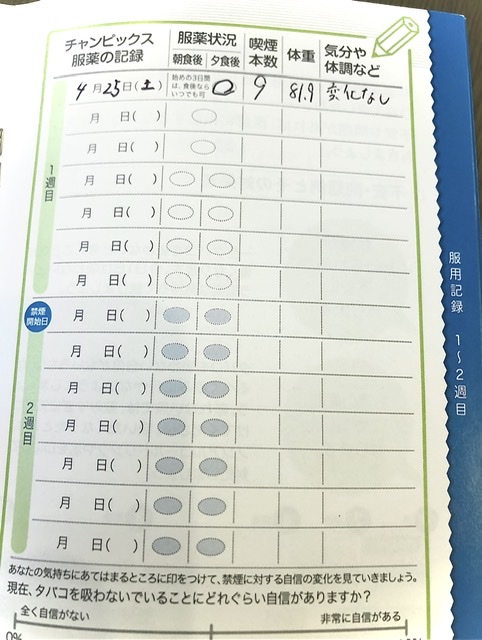 チャンピックス
服薬の記録
服薬状況
朝食後 夕食後
喫煙
本数
体重
気分や
体調など
4月25日(土) 始めの3日間は、食後ならいつでも可 9 81.9 変化なし
月 日( )
月 日( )
月 日( )
月 日( )
月 日( )
月 日( )
1週目
禁煙
開始日
月 日( )
月 日( )
月 日( )
月 日( )
月 日( )
月 日( )
月 日( )
2週目
あなたの気持ちにあてはまるところに印をつけて、禁煙に対する自信の変化を見ていきましょう。
現在、タバコを吸わないでいることにどれぐらい自信がありますか?
全く自信がない 非常に自信がある
0%
服用記録 1~2週目